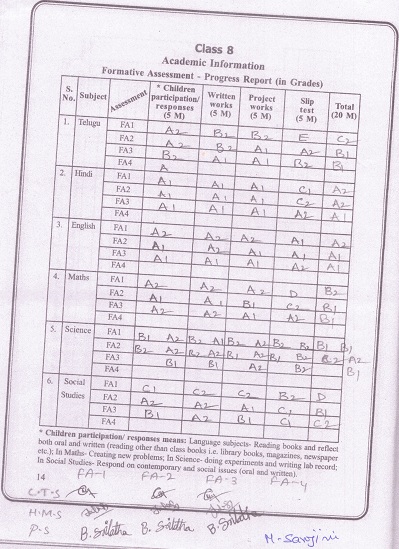 Class 8
Academic Information
Formative Assessment - Progress Report (in Grades)
S. No. Subject Assessment * Children participation/ responses (5 M) Written works (5 M) Project works (5 M) Slip test (5 M) Total (20 M)
1. Telugu FA1 A2 B2 B2 E C2
FA2 A2 B2 A1 A2 B1
FA3 B2 A1 A1 B2 B1
FA4
2. Hindi FA1 A
FA2 A1 A1 A1 C1 A2
FA3 A1 A1 A1 C2 A2
FA4 A1 A1 A1 A2 A1
3. English FA1
FA2 A2 A2 A2 A1 A2
FA3 A1 A2 A1 A1 A1
FA4 A1 A1 A1 A2 A1
4. Maths FA1
FA2 A2 A2 A2 D B2
FA3 A1 A1 B1 C2 B1
FA4 A2 A2 A1 A2 B1
5. Science FA1
B1 A2 B2 A1 B2 A2 B2 B2 B1 B1
FA2 B2 A2 B2 A2 B1 A2 B1 B2 B2 A2
FA3 B1 B1 A2 B2 B1
FA4
6. Social Studies FA1 C1 C2 C2 B2 D
FA2 A2 A2 A1 C1 B1
FA3 B1 A2 B1 C1 C2
FA4
* Children participation/ responses means: Language subjects- Reading books and reflect
both oral and written (reading other than class books i.e. library books, magazines, newspaper
etc.); In Maths- Creating new problems; In Science- doing experiments and writing lab record;
In Social Studies- Respond on contemporary and social issues (oral and written).
14 FA-1 FA-2 FA-3 FA-4
C-T-S
H-M-S
P-S B. Srilatha B. Srilatha B. Srilatha
M. Sarojini